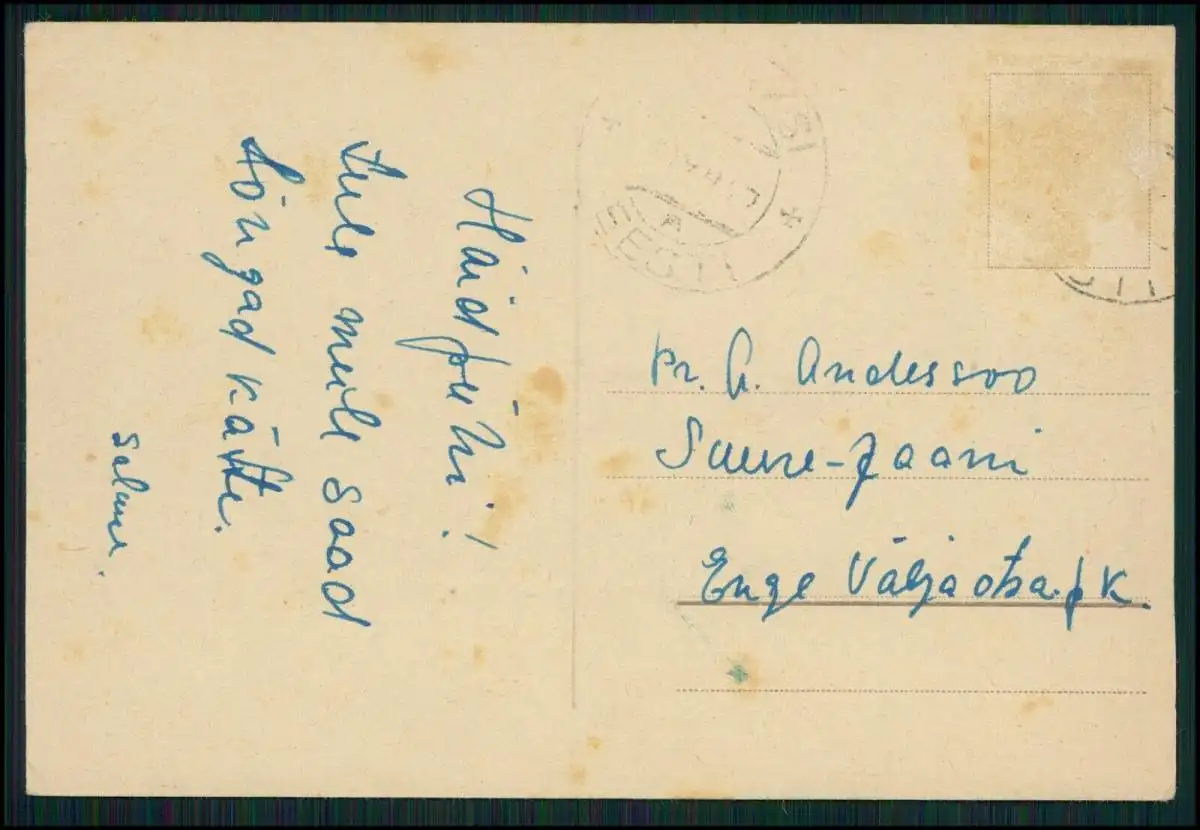 Häid pühi!
Tule meile saad
lõngad kätte.
Salme.
EESTI
Pr. A. Anderssoo
Suure-Jaani
Enge Väljaotsa. pk.